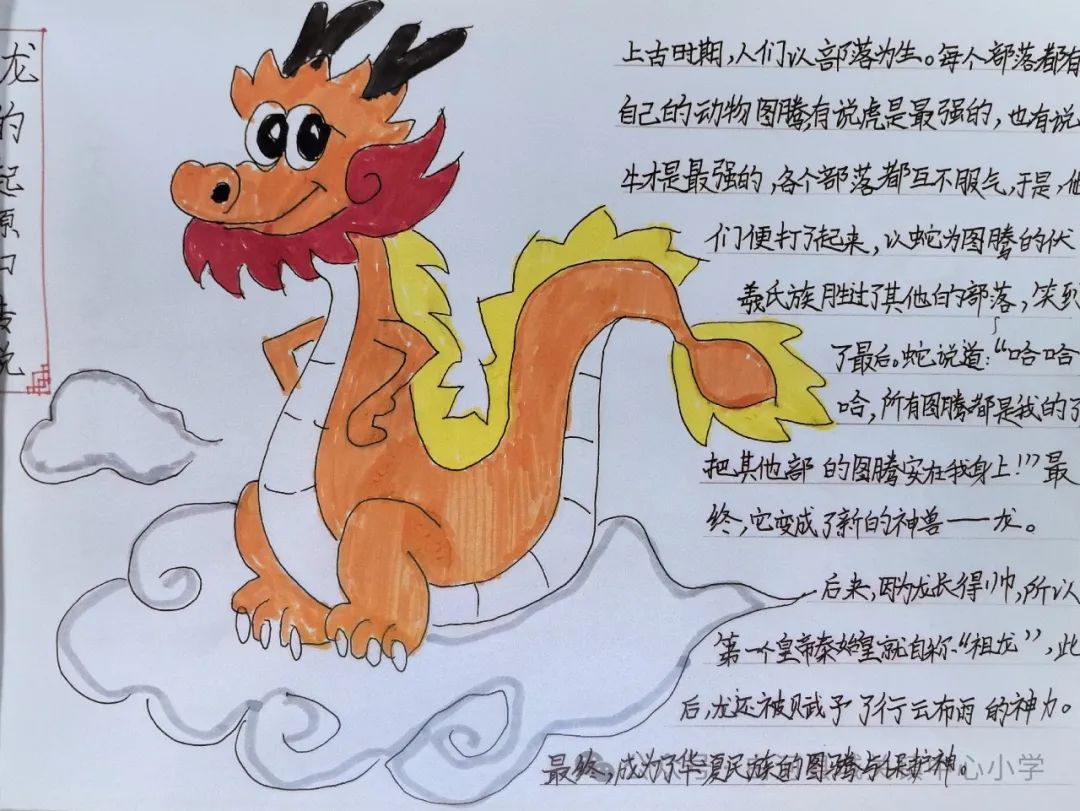 龙的起源和传说
上古时期,人们以部落为生。每个部落都有
自己的动物图腾,有说虎是最强的,也有说
牛才是最强的,各个部落都互不服气,于是,他
们便打了起来,以蛇为图腾的伏
羲氏族月胜过了其他的部落,笑到
了最后。蛇说道:“哈哈
哈,所有图腾都是我的了
把其他部的图腾安在我身上!”最
终,它变成了新的神兽——龙。
后来,因为龙长得帅,所以
第一个皇帝秦始皇就自称“祖龙”,此
后,龙还被赋予了行云布雨的神力。
最终,成为了华夏民族的图腾与保护神。
心小学